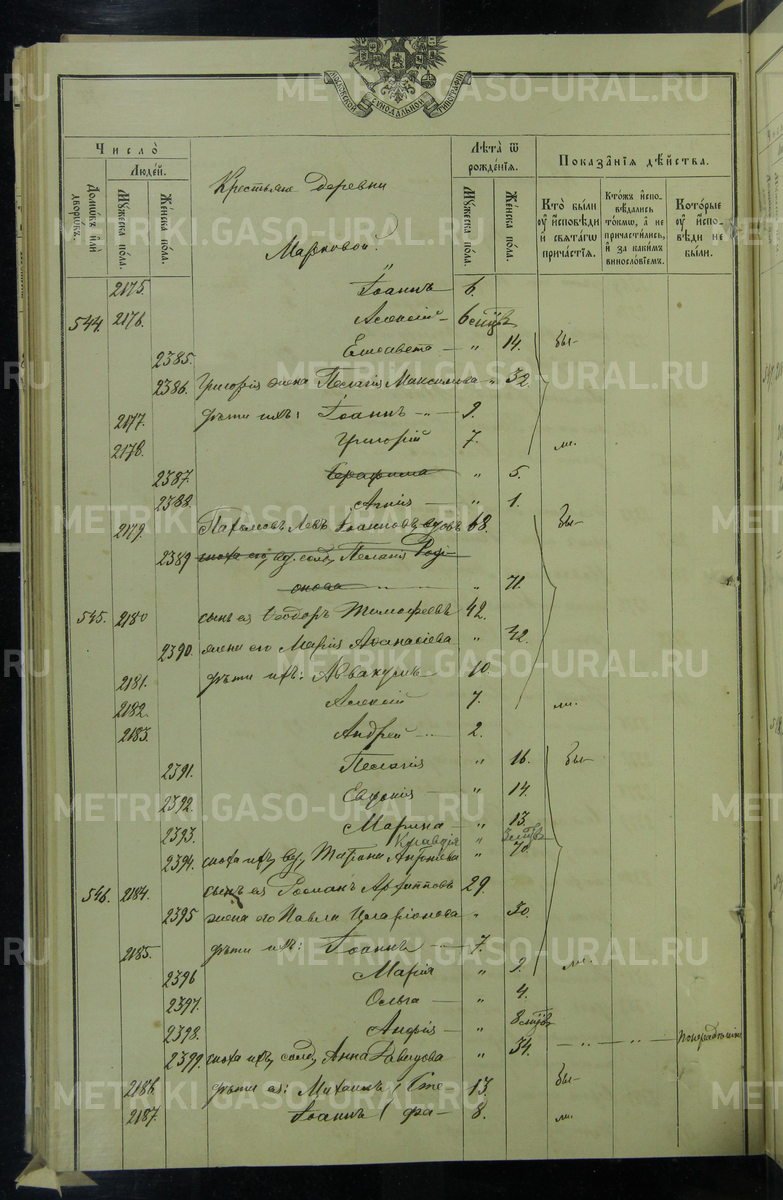 МОСКОВСКОЙ СѴНОДАЛЬНОЙ ТИПОГРАФІИ
Число̀
Людей.
Домѡвъ или дворѡвъ.
Мꙋжеска пола.
Женска пола.
Лѣта ѿ рожденїѧ.
Мꙋжеска пола.
Женска пола.
Показанїѧ дѣйства.
Кто были ꙋ исповѣди и свѧтагѡ причастїѧ.
Ктожъ исповѣдались токмѡ, а не причастились, и за какимъ винословїемъ.
Которые ꙋ исповѣди не были.
Крестьяне Деревни
Марковой.
2175. Іоаннъ 6.
544. 2176. Алексій — 6 мцвъ
2385. Елисавета — " 14. бы-
2386. Григорія жена Пелагія Максимова " 32.
2177. дѣти ихъ: Іоаннъ — " — 9.
2178. Григорій 7. ли.
2387. Серафима " 5.
2388. Агнія — " 1.
2179. Пахомовъ Левъ Іоанновъ вдовъ 68. бы-
2389 сноха его, вд. солд. Пелагія Роді-
онова " 71.
545. 2180 сынъ ея Ѳеодоръ Тимофеевъ 42.
2390. жена его Марія Аѳанасіева " 42.
2181. дѣти ихъ: Аввакумъ — 10.
2182. Алексій 7. ли.
2183. Андрей — 2.
2391. Пелагія " 16. бы-
2392. Евдокія — " 14.
2393. Марина — " 13.
Клавдія " 3 мцвъ
2394. сноха ихъ вд. Татіана " 70.
546. 2184. сынъ ея Романъ Архипповъ 29.
2395 жена его Павла Иларіонова " 30.
2185. дѣти ихъ: Іоаннъ — 7.
2396 Марія " 9. ли.
2397. Ольга — " 4.
2398. — " 8 мцвъ
2399. сноха ихъ солд. Анна Давидова " 34. — " — " —
2186. дѣти ея: Михаилъ Сте- 13. бы-
2187. Іоаннъ фа- 8. ли.
METRIKI.GASO-URAL.RU